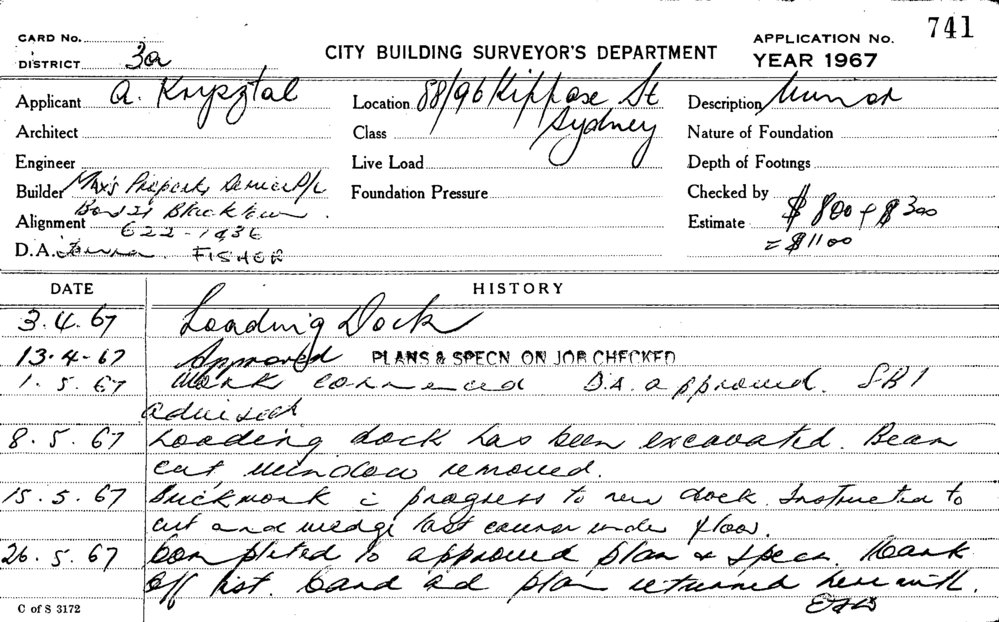 741
CARD No.
DISTRICT 3a
CITY BUILDING SURVEYOR'S DEPARTMENT
APPLICATION No.
YEAR 1967
Applicant A. Krysztal
Location 88/96 Kippax St
Sydney
Description Minor
Architect
Class
Nature of Foundation
Engineer
Live Load
Depth of Footings
Builder Max's Property P/L
Foundation Pressure
Checked by
Box 21 Blacktown.
Alignment
622-1436
Estimate $800 + $300
= $1100
D.A. FISHER
DATE
HISTORY
3.4.67 Loading Dock
13.4-67 Approved PLANS & SPECN ON JOB CHECKED
1.5.67 Work commenced D.A. approved.
advised
8.5.67 Loading dock has been excavated. Beam
cut, window removed.
15.5.67 Brickwork in progress to new dock. Instructed to
cut and wedge last course under floor.
26.5.67 Completed to approved plan & specn. Mark
off list. Card and plan returned herewith.
C of S 3172